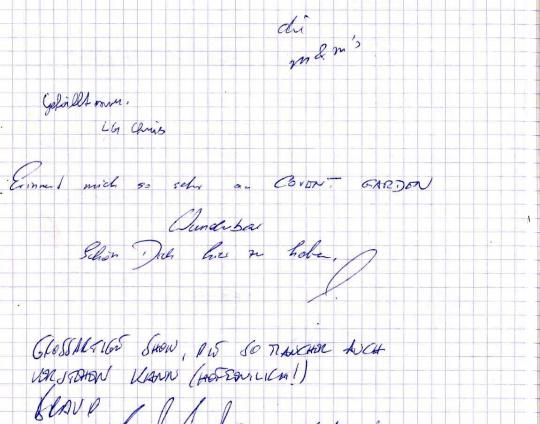 die
m&m's
Gefällt mir.
LG Chris
Erinnert mich so sehr an COVENT GARDEN
Wunderbar
Schön Dich hier zu haben.
GROSSARTIGE SHOW, DIE SO MANCHER AUCH
VERSTEHEN KANN (HOFFENTLICH!)